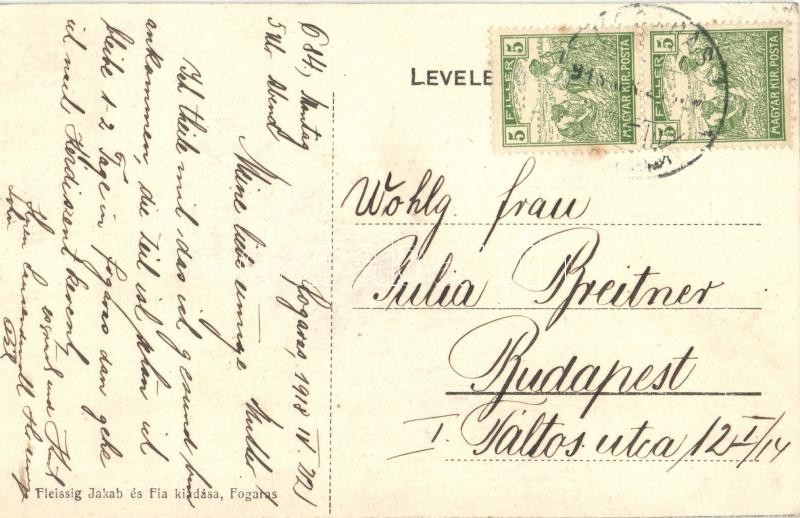 LEVELE
5 FILLÉR 5
MAGYAR KIR. POSTA
5 FILLÉR 5
MAGYAR KIR. POSTA
Wohlg. Frau
Julia Breitner
Budapest
I. Táltos utca 12 I/14
Fogaras, 1918 IV. 22
5 Uhr Abend
Meine liebe einzige Mutter!
Ich theile mit das ich gesund bin
ankommen, die Zeit ist schön ich
bleibe 1-2 Tage in Fogaras dan gehe
ich nach
Fleissig Jakab és Fia kiadása, Fogaras